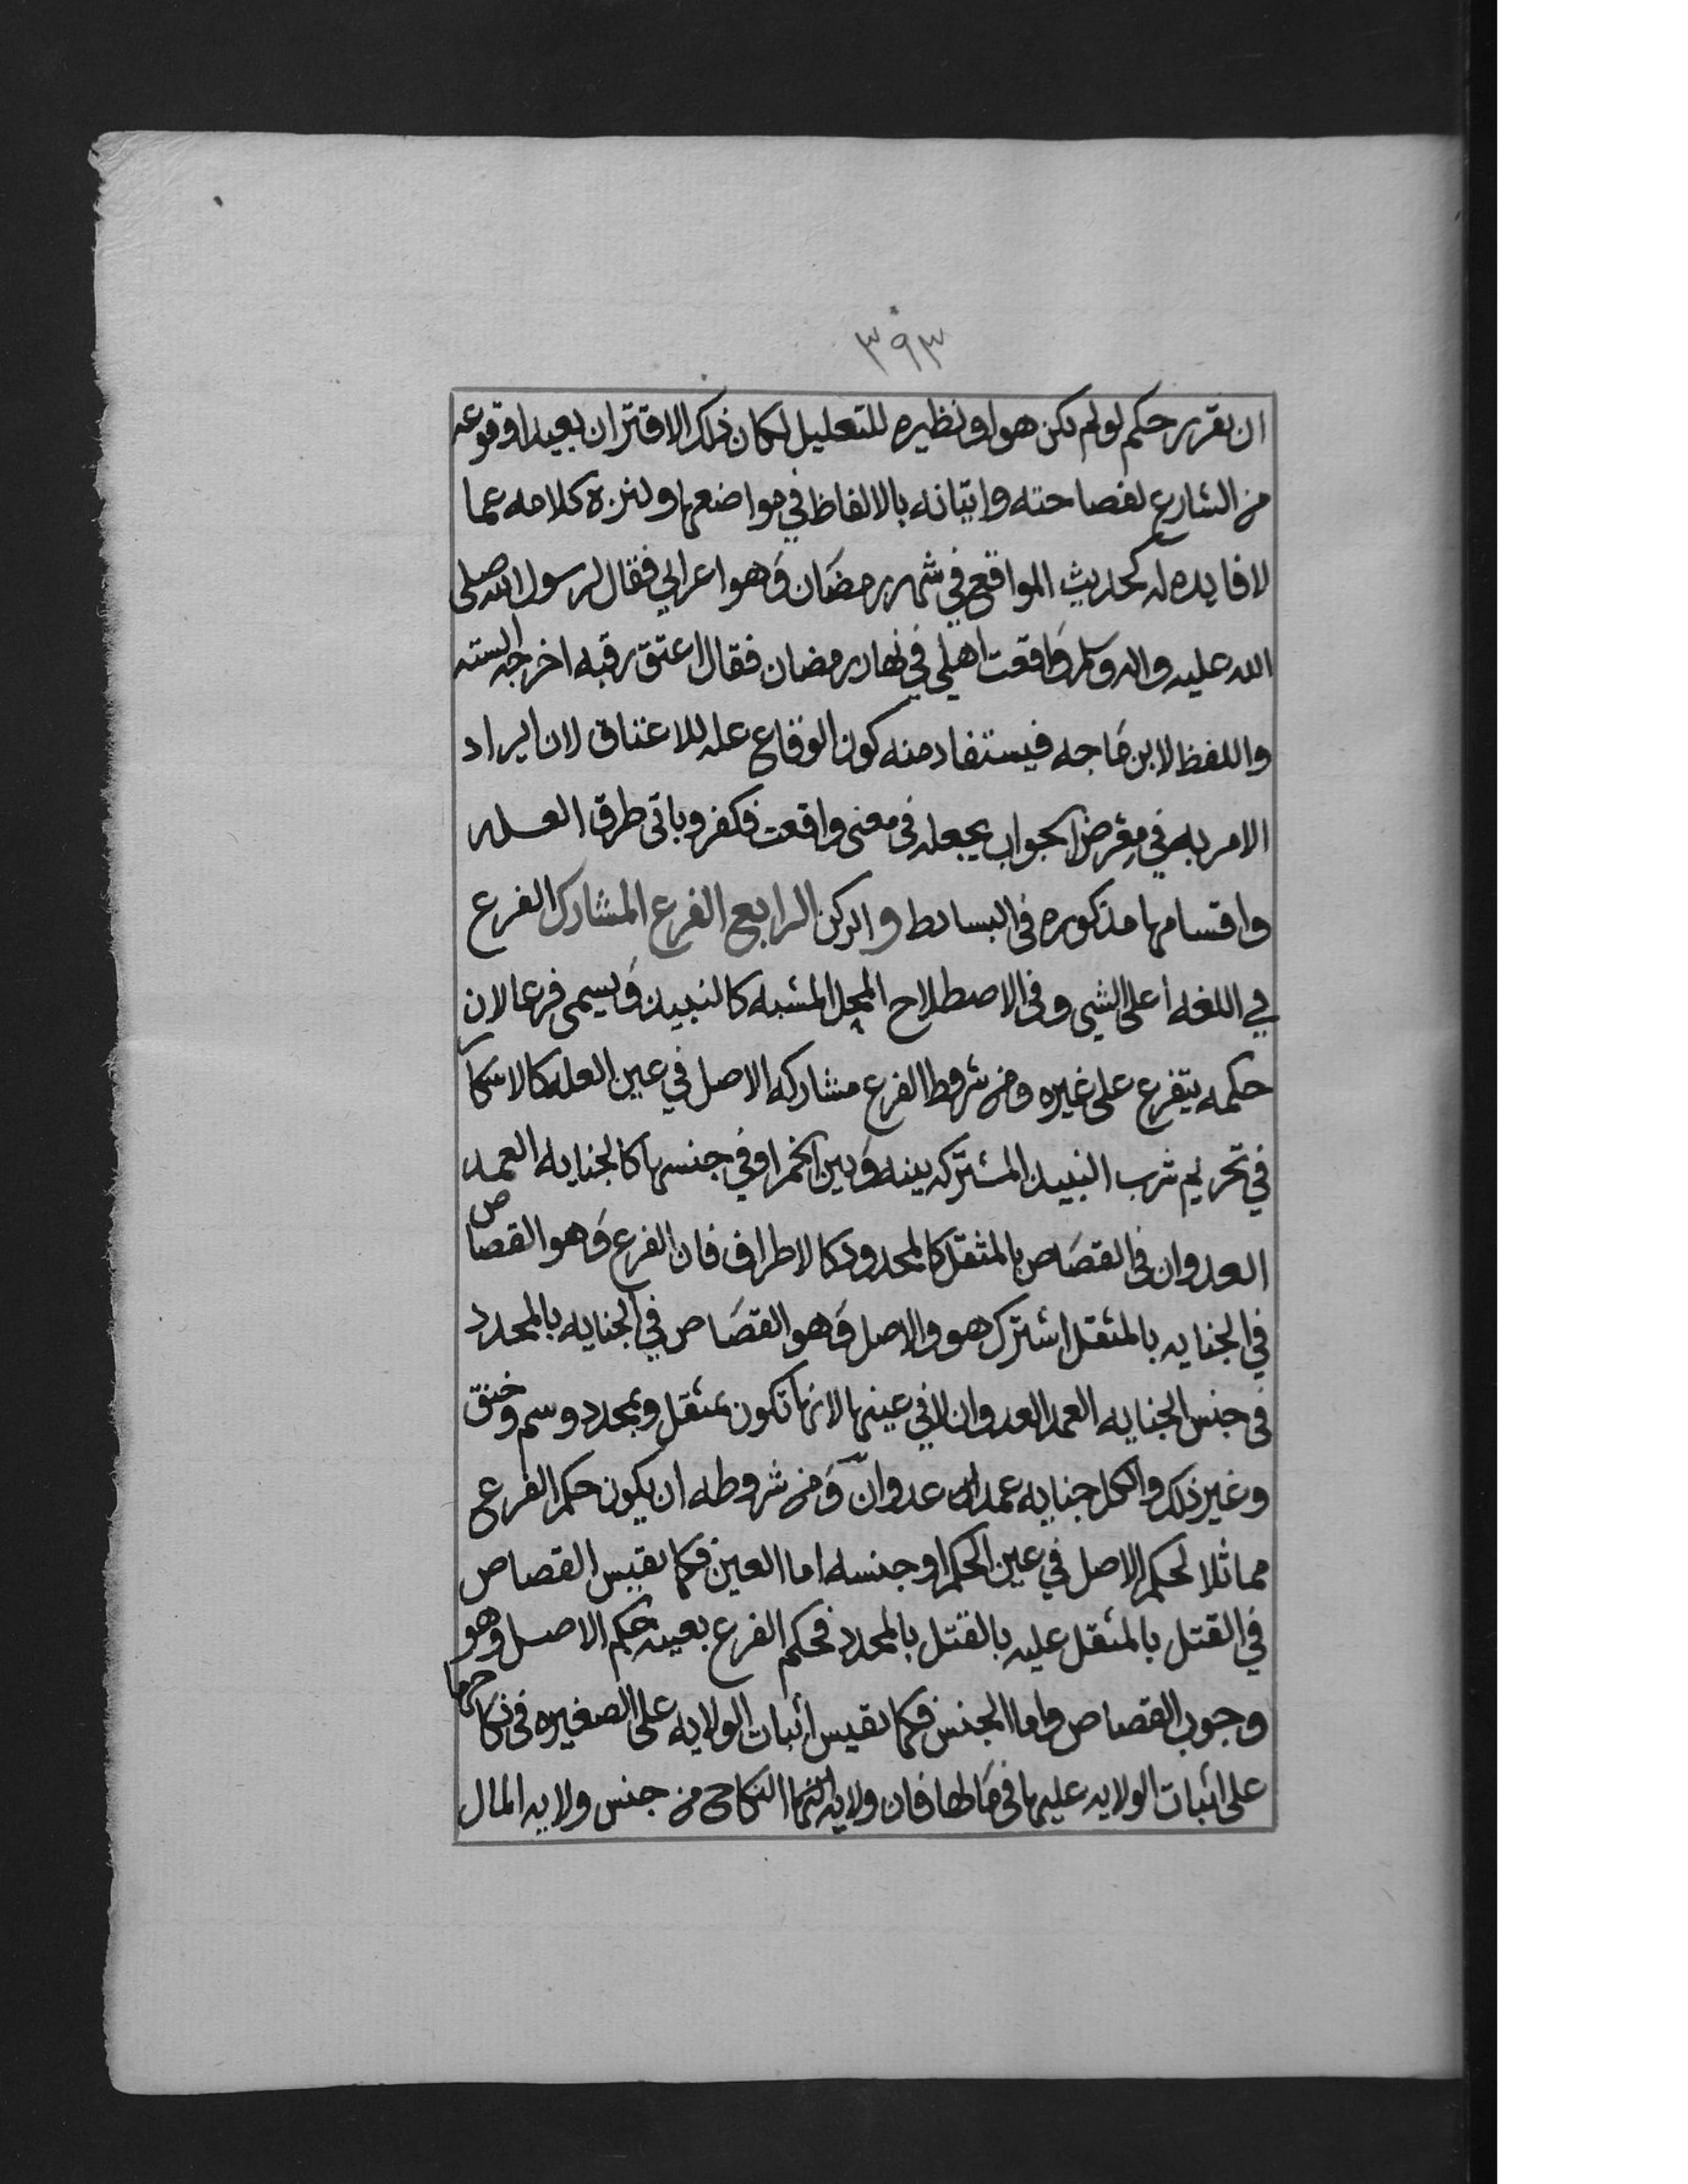 ٣٩٣
ان نقرر حكم لو لم يكن هو او نظيره للتعليل لكان ذلك الاقتران بعيدا وقوعه
من الشارع لفصاحته واتيانه بالالفاظ في مواضعها ولنزه كلامه عما
لا فايده له كحديث المواقع في شهر رمضان وهو اعرابي فقال لرسول الله صلى
الله عليه واله وسلم واقعت اهلي في نهار رمضان فقال اعتق رقبه اخرجه الستة
واللفظ لابن ماجه فيستفاد منه كون الوقاع عله للاعتاق لان ايراد
الامر به في معرض الجواب يجعله في معنى واقعت فكفر وباقى طرق العله
واقسامها مذكوره في البسائط والركن الرابع الفرع المشارك الفرع
في اللغه أعلى الشي وفي الاصطلاح المحل المشبه كالنبيذ ويسمى فرعا لان
حكمه يتفرع على غيره ومن شروط الفرع مشاركه الاصل في عين العله كالاسكار
في تحريم شرب النبيذ المشتركه بينه وبين الخمر او في جنسها كالجنايه العمد
العدوان في القصاص بالمثقل كالمحدود كالاطراف فان الفرع وهو القصاص
في الجنايه بالمثقل اشترك هو والاصل وهو القصاص في الجنايه بالمحدد
في جنس الجنايه العمد العدوان لا في عينها لانها تكون بمثقل وبمحدد وسم وخنق
وغير ذلك والكل جنايه عمدا عدوان ومن شروطه ان يكون حكم الفرع
مماثلا لحكم الاصل في عين الحكم او جنسه اما العين فكما نقيس القصاص
في القتل بالمثقل عليه بالقتل بالمحدد فحكم الفرع بعينه حكم الاصل وهو
وجوب القصاص واما الجنس فكما نقيس اثبات الولايه على الصغيره في نكاحها
على اثبات الولايه عليها في مالها فان ولايه النكاح من جنس ولايه المال